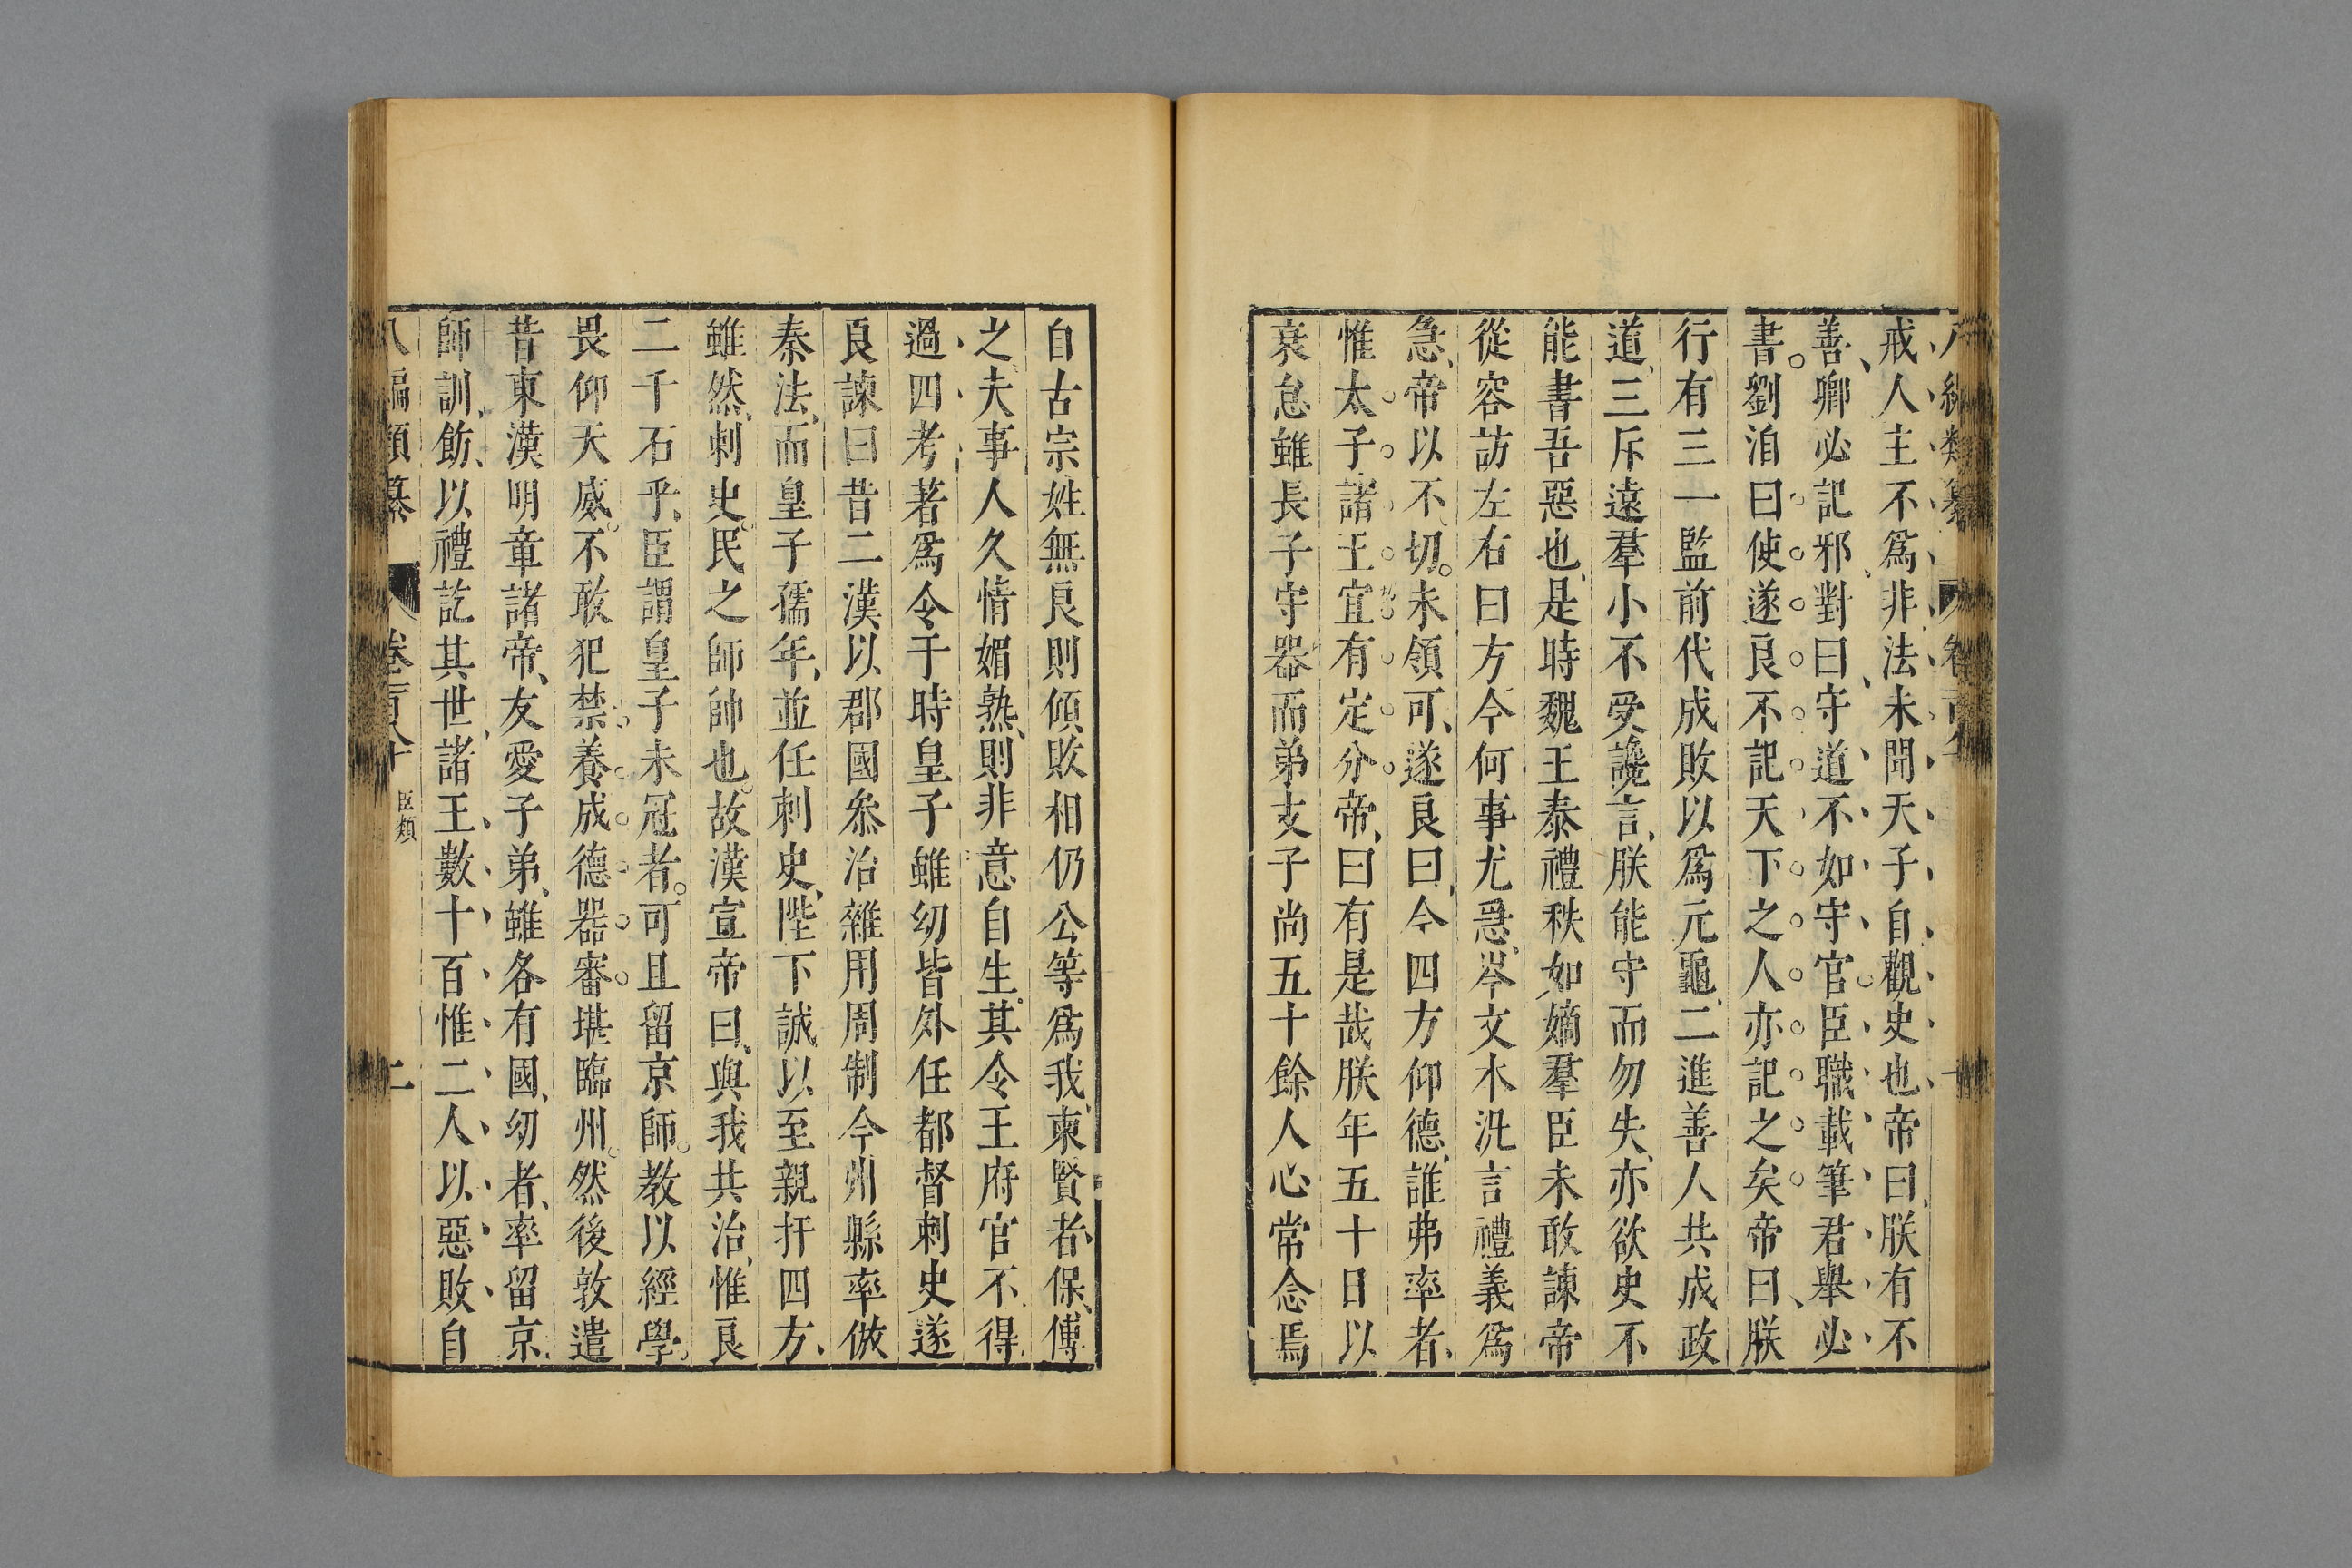 戒人主不爲非法未聞天子自觀史也帝曰朕有不
善卿必記邪對曰守道不如守官臣職載筆君舉必
書劉洎曰使遂良不記天下之人亦記之矣帝曰朕
行有三一監前代成敗以爲元龜二進善人共成政
道三斥遠羣小不受讒言朕能守而勿失亦欲史不
能書吾惡也是時魏王泰禮秩如嫡羣臣未敢諫帝
從容訪左右曰方今何事尤急岑文本泛言禮義爲
急帝以不切未領可遂良曰今四方仰德誰弗率者
惟太子諸王宜有定分帝曰有是哉朕年五十日以
衰怠雖長子守器而弟支子尚五十餘人心常念焉
自古宗姓無良則傾敗相仍公等爲我柬賢者保傅
之夫事人久情媚熟則非意自生其令王府官不得
過四考著爲令于時皇子雖幼皆外任都督刺史遂
良諫曰昔二漢以郡國叅治雜用周制今州縣率倣
秦法而皇子孺年並任刺史陛下誠以至親扞四方
雖然刺史民之師帥也故漢宣帝曰與我共治惟良
二千石乎臣謂皇子未冠者可且留京師教以經學
畏仰天威不敢犯禁養成德器審堪臨州然後敦遣
昔東漢明章諸帝友愛子弟雖各有國幼者率留京
師訓飭以禮訖其世諸王數十百惟二人以惡敗自
八編類纂 卷一百八十 臣類 二